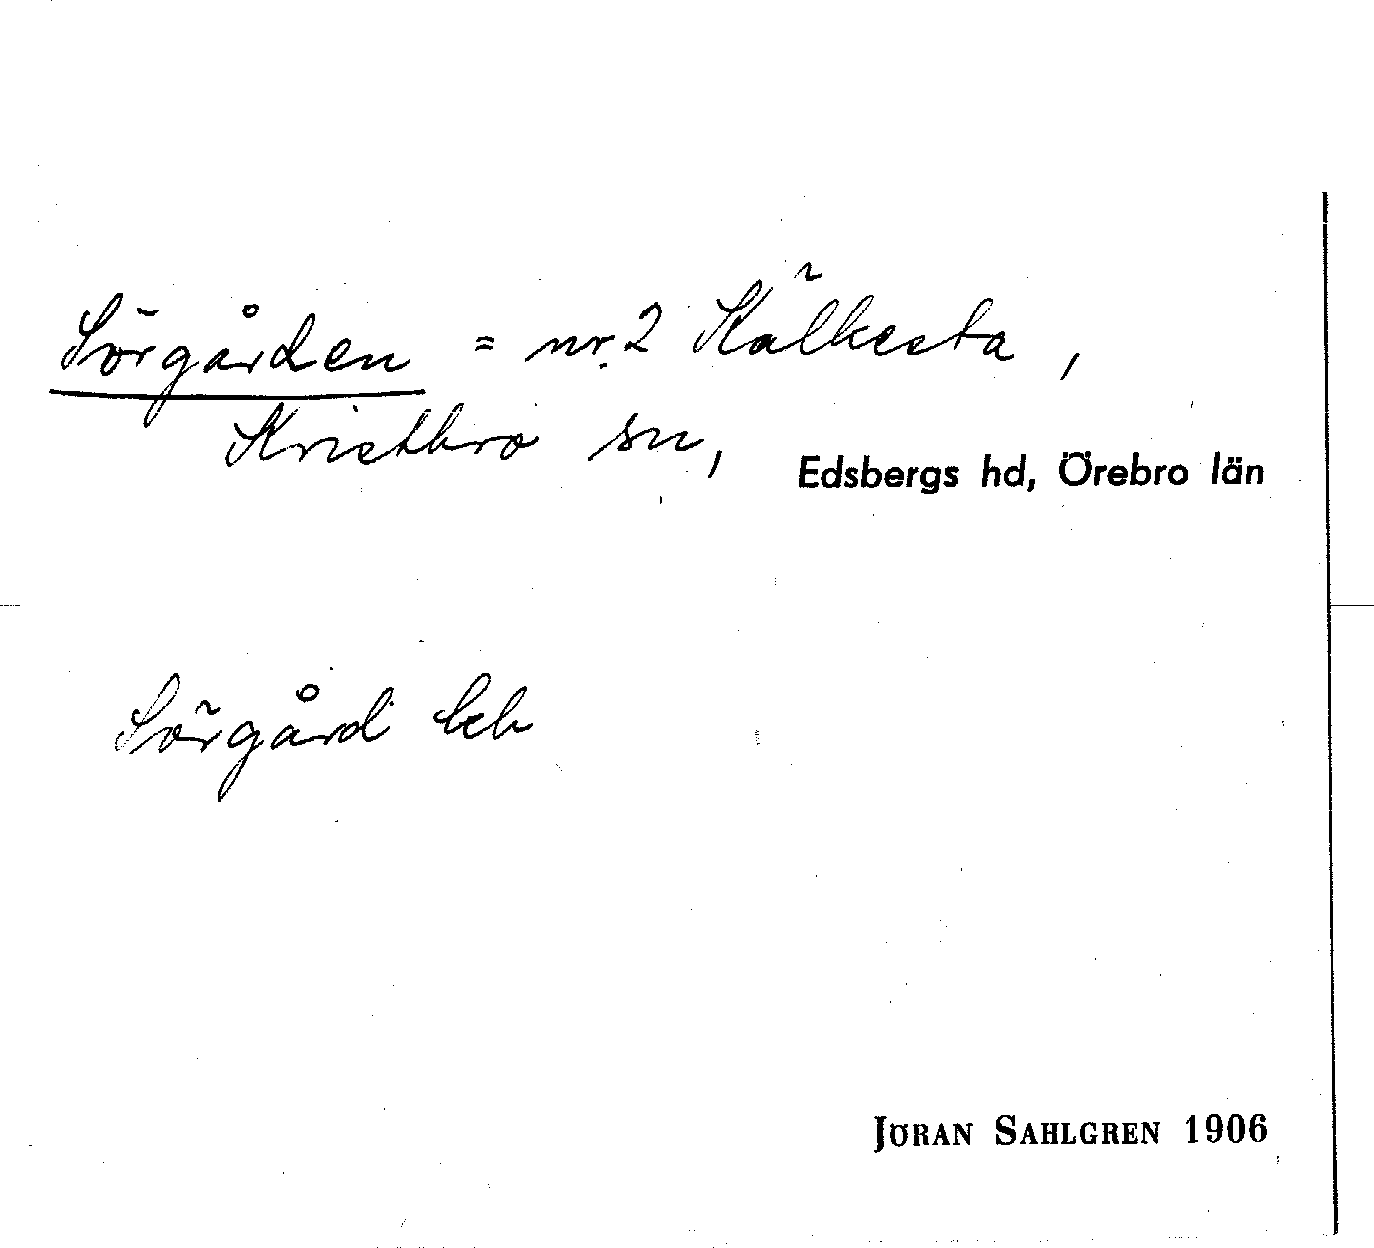 Sörgården = nr. 2 Kälkesta,
Kristbro sn, Edsbergs hd, Örebro län
Sörgård leb
JÖRAN SAHLGREN 1906